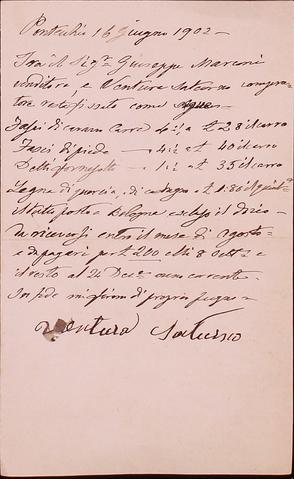 Pontecchio 16 Giugno 1902
Tra il Sigr Giuseppe Marconi
venditore, e Ventura Saturno compra-
tore resta fissato come segue
Fasci di Carre 4½, a £ 28 il carro
Fasci di piede 4½ a £ 40 il carro
Detti 1½ a £ 35 il carro
Legna di quercia, di castagno a £ 1:80 il quintale
Il tutto posto a Bologna escluso il dazio
da riceversi entro il mese di agosto
e da pagarsi per £ 200 alli 8 Sette e
il resto al 24 Dece anno corrente.
In fede mi firmo di proprio pugno
Ventura Saturno